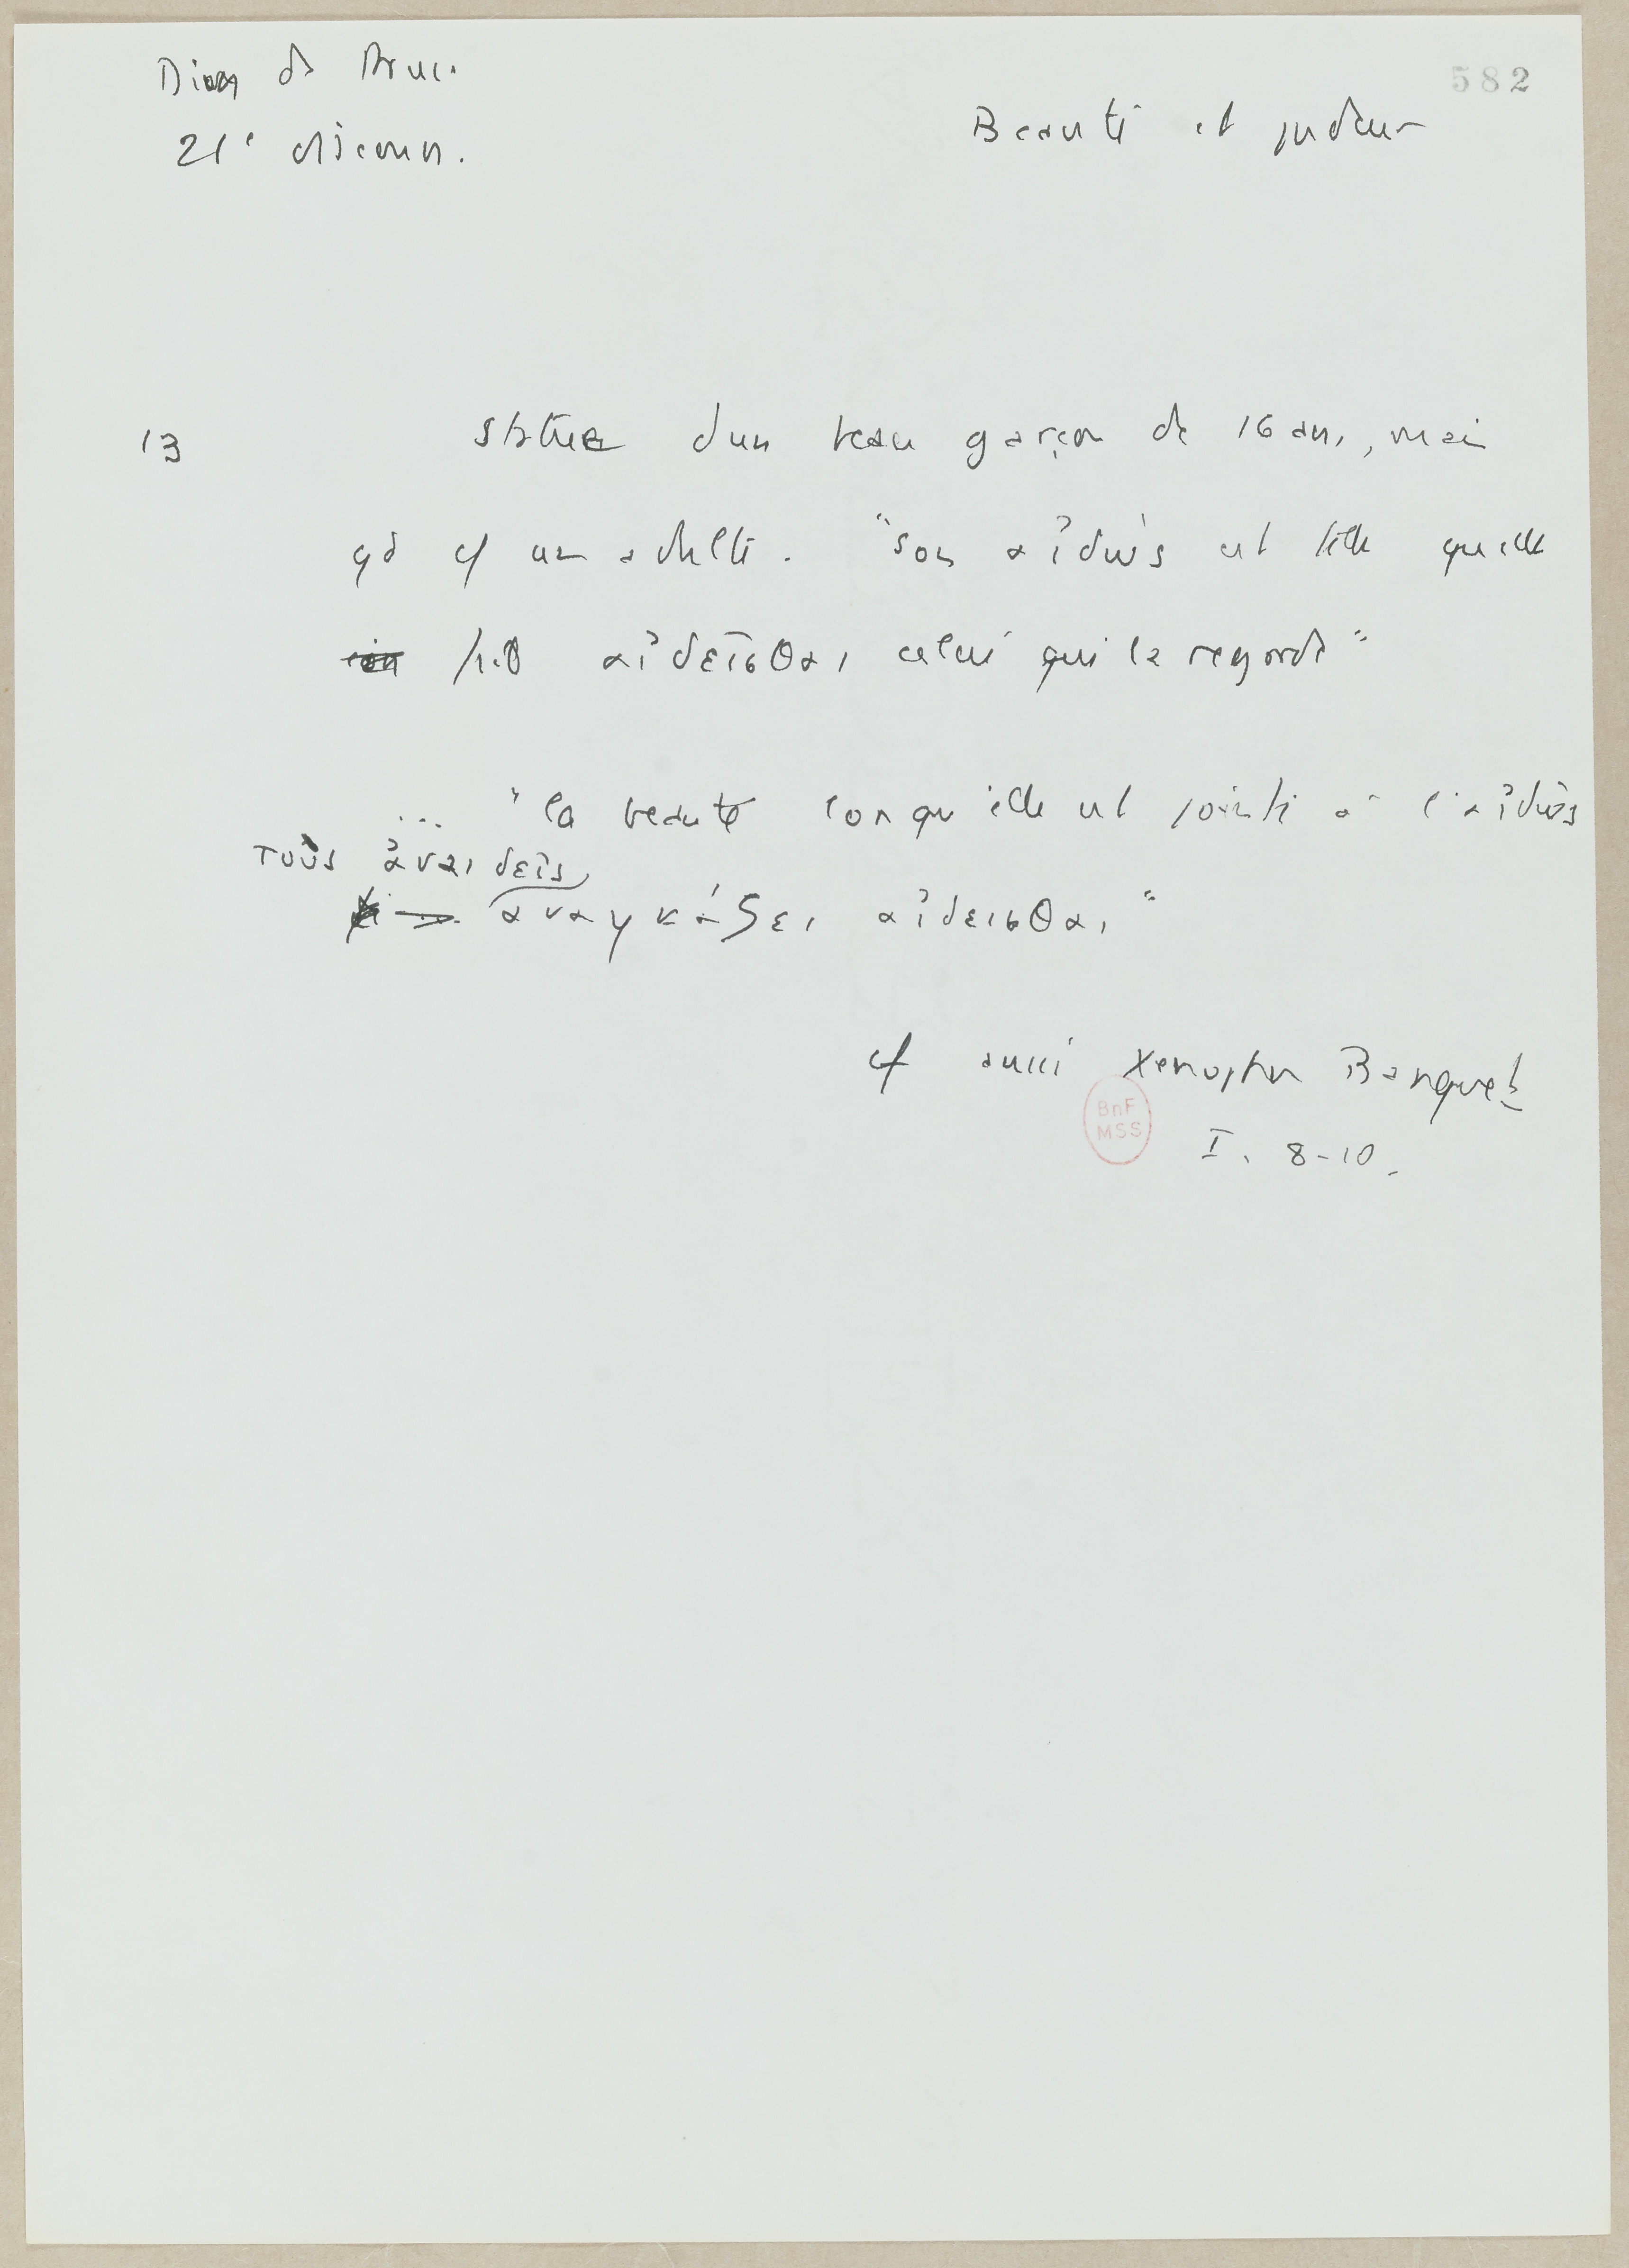 Dion de Pruse
582
21e discours.
Beauté et pudeur
13 statue d'un beau garçon de 16 ans, mais
qd un adulte. "son αἰδὼς est telle qu'elle
fait αἰδεῖσθαι celui qui la regarde"
... "la beauté lorsqu'elle est jointe à l'αἰδὼς
τοὺς ἀναιδεῖς
αναγκάζει αἰδεισθαι"
cf aussi Xenophon Banquet
BnF
MSS
I. 8-10.